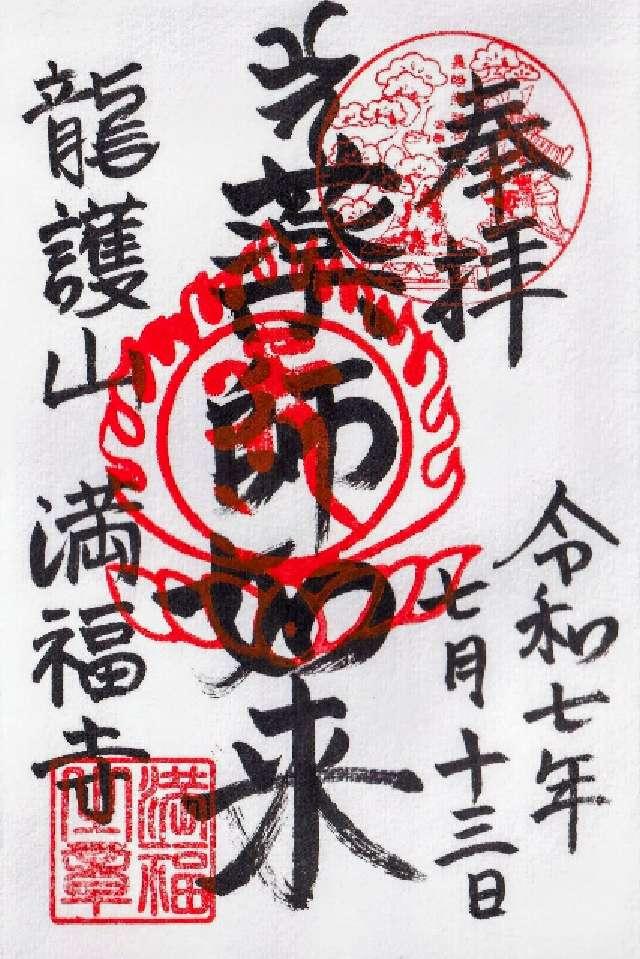 奉拝
令和七年
七月十三日
薬師如来
龍護山 満福寺
満福